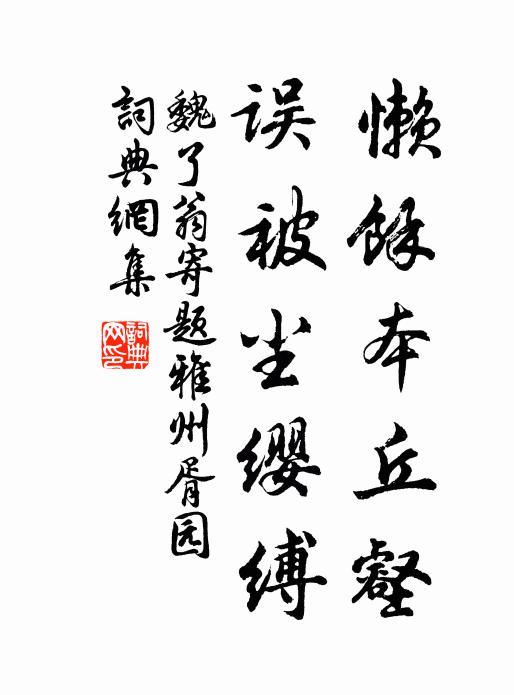 懒餘本丘壑
误被尘缨缚
魏了翁寄题雅州胥园
詞典網集
詞典網印